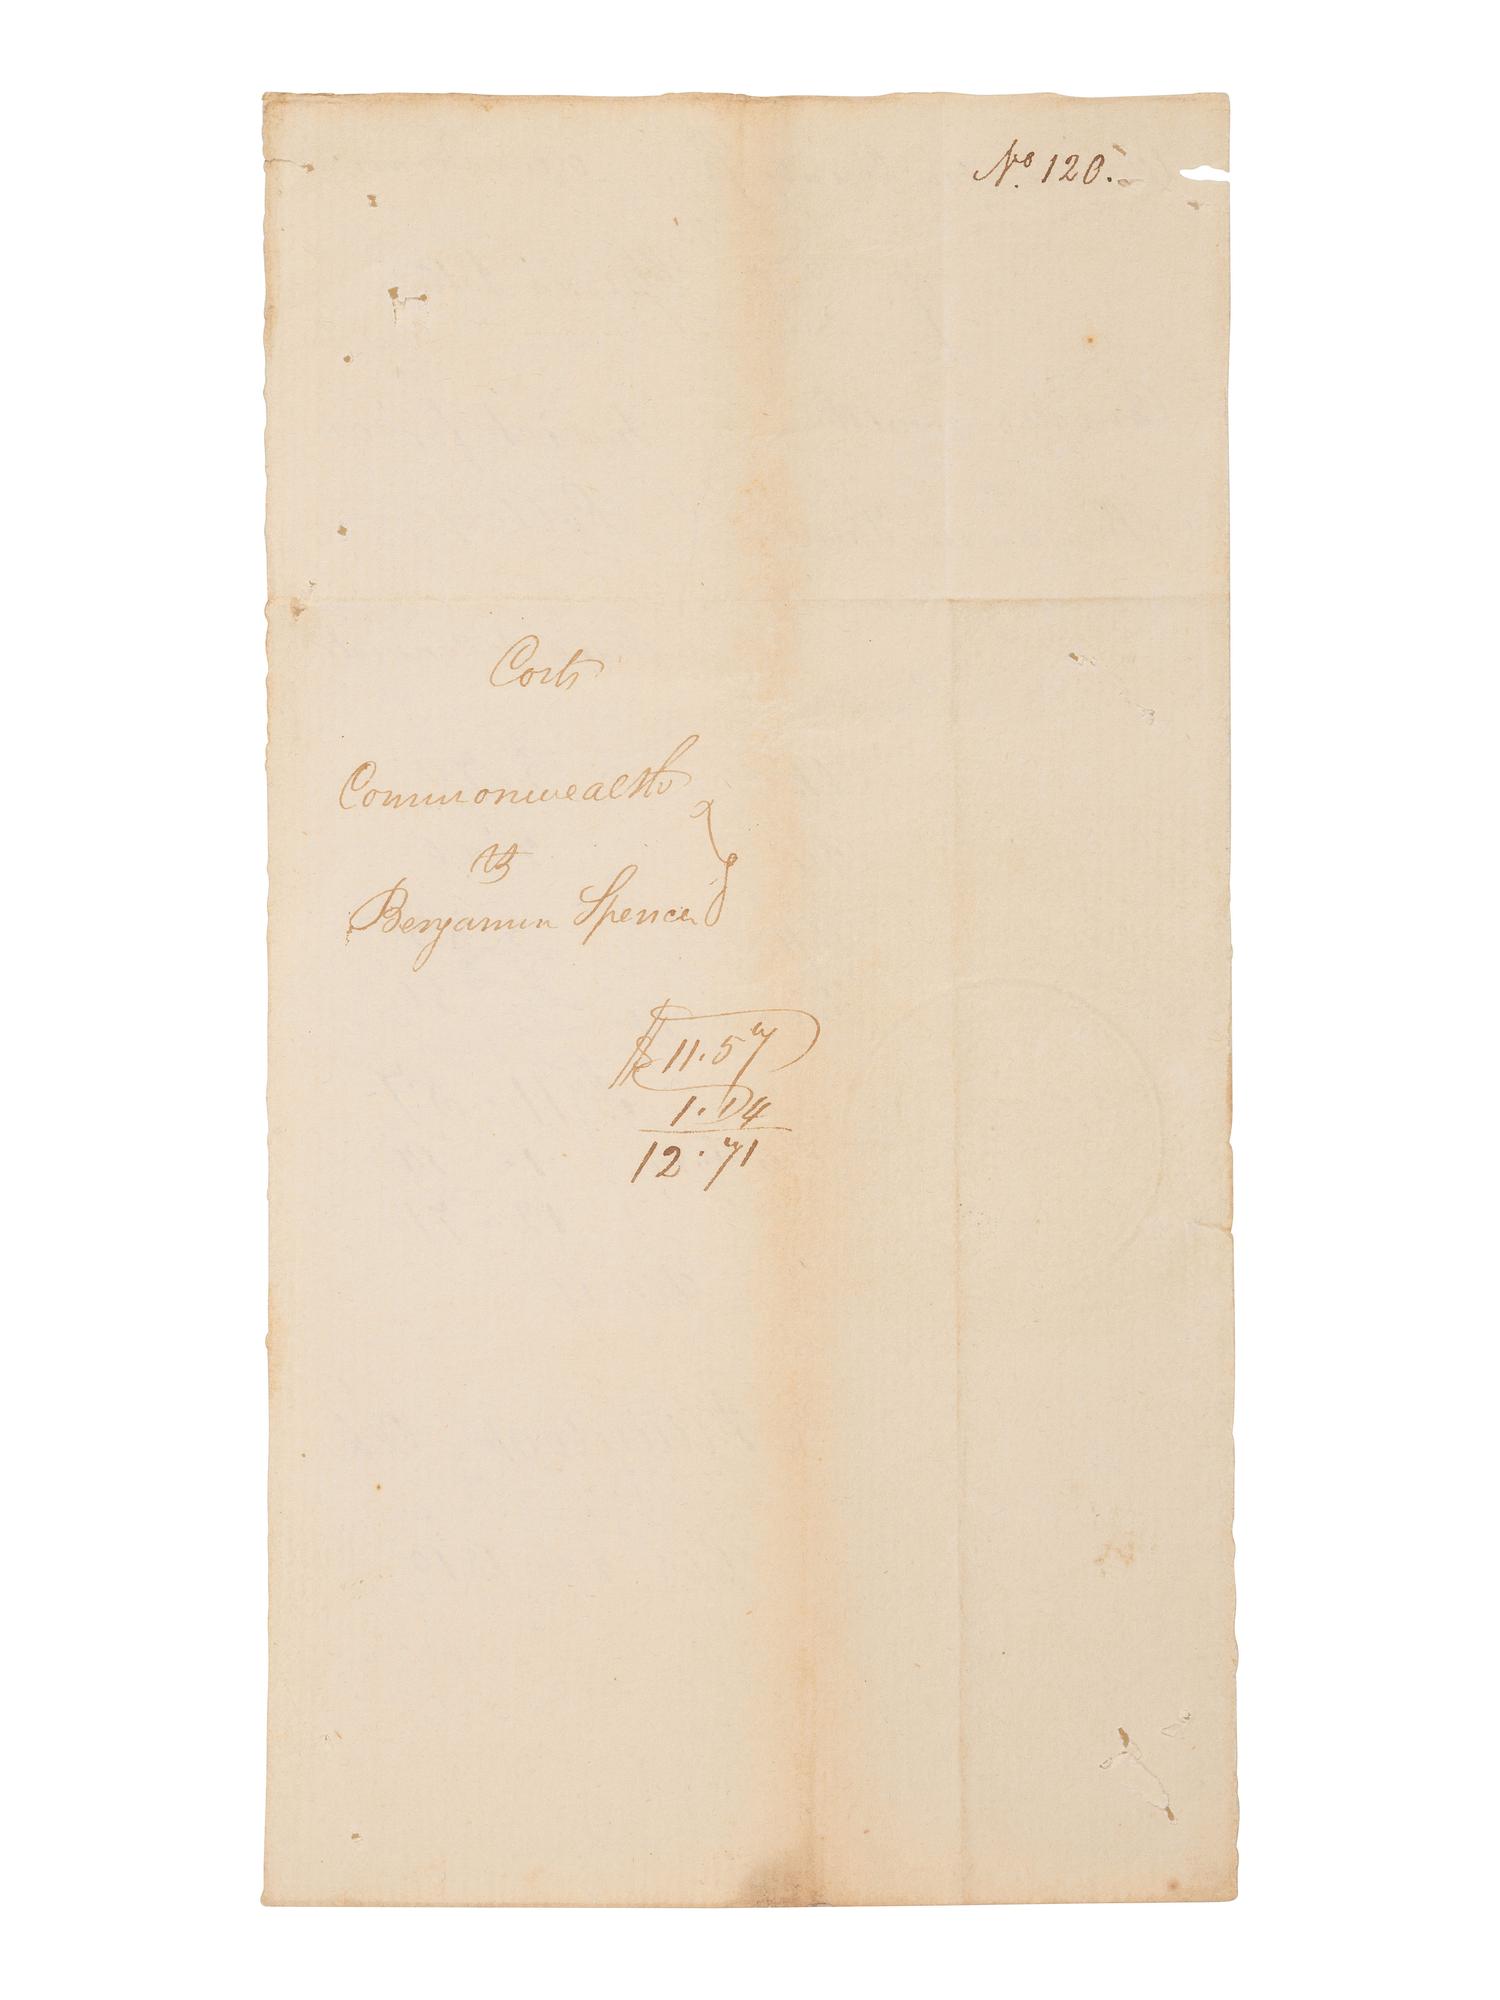 No. 120.
Costs
Commonwealth
vs
Benjamin Spencer
$11.57
1.14
12.71